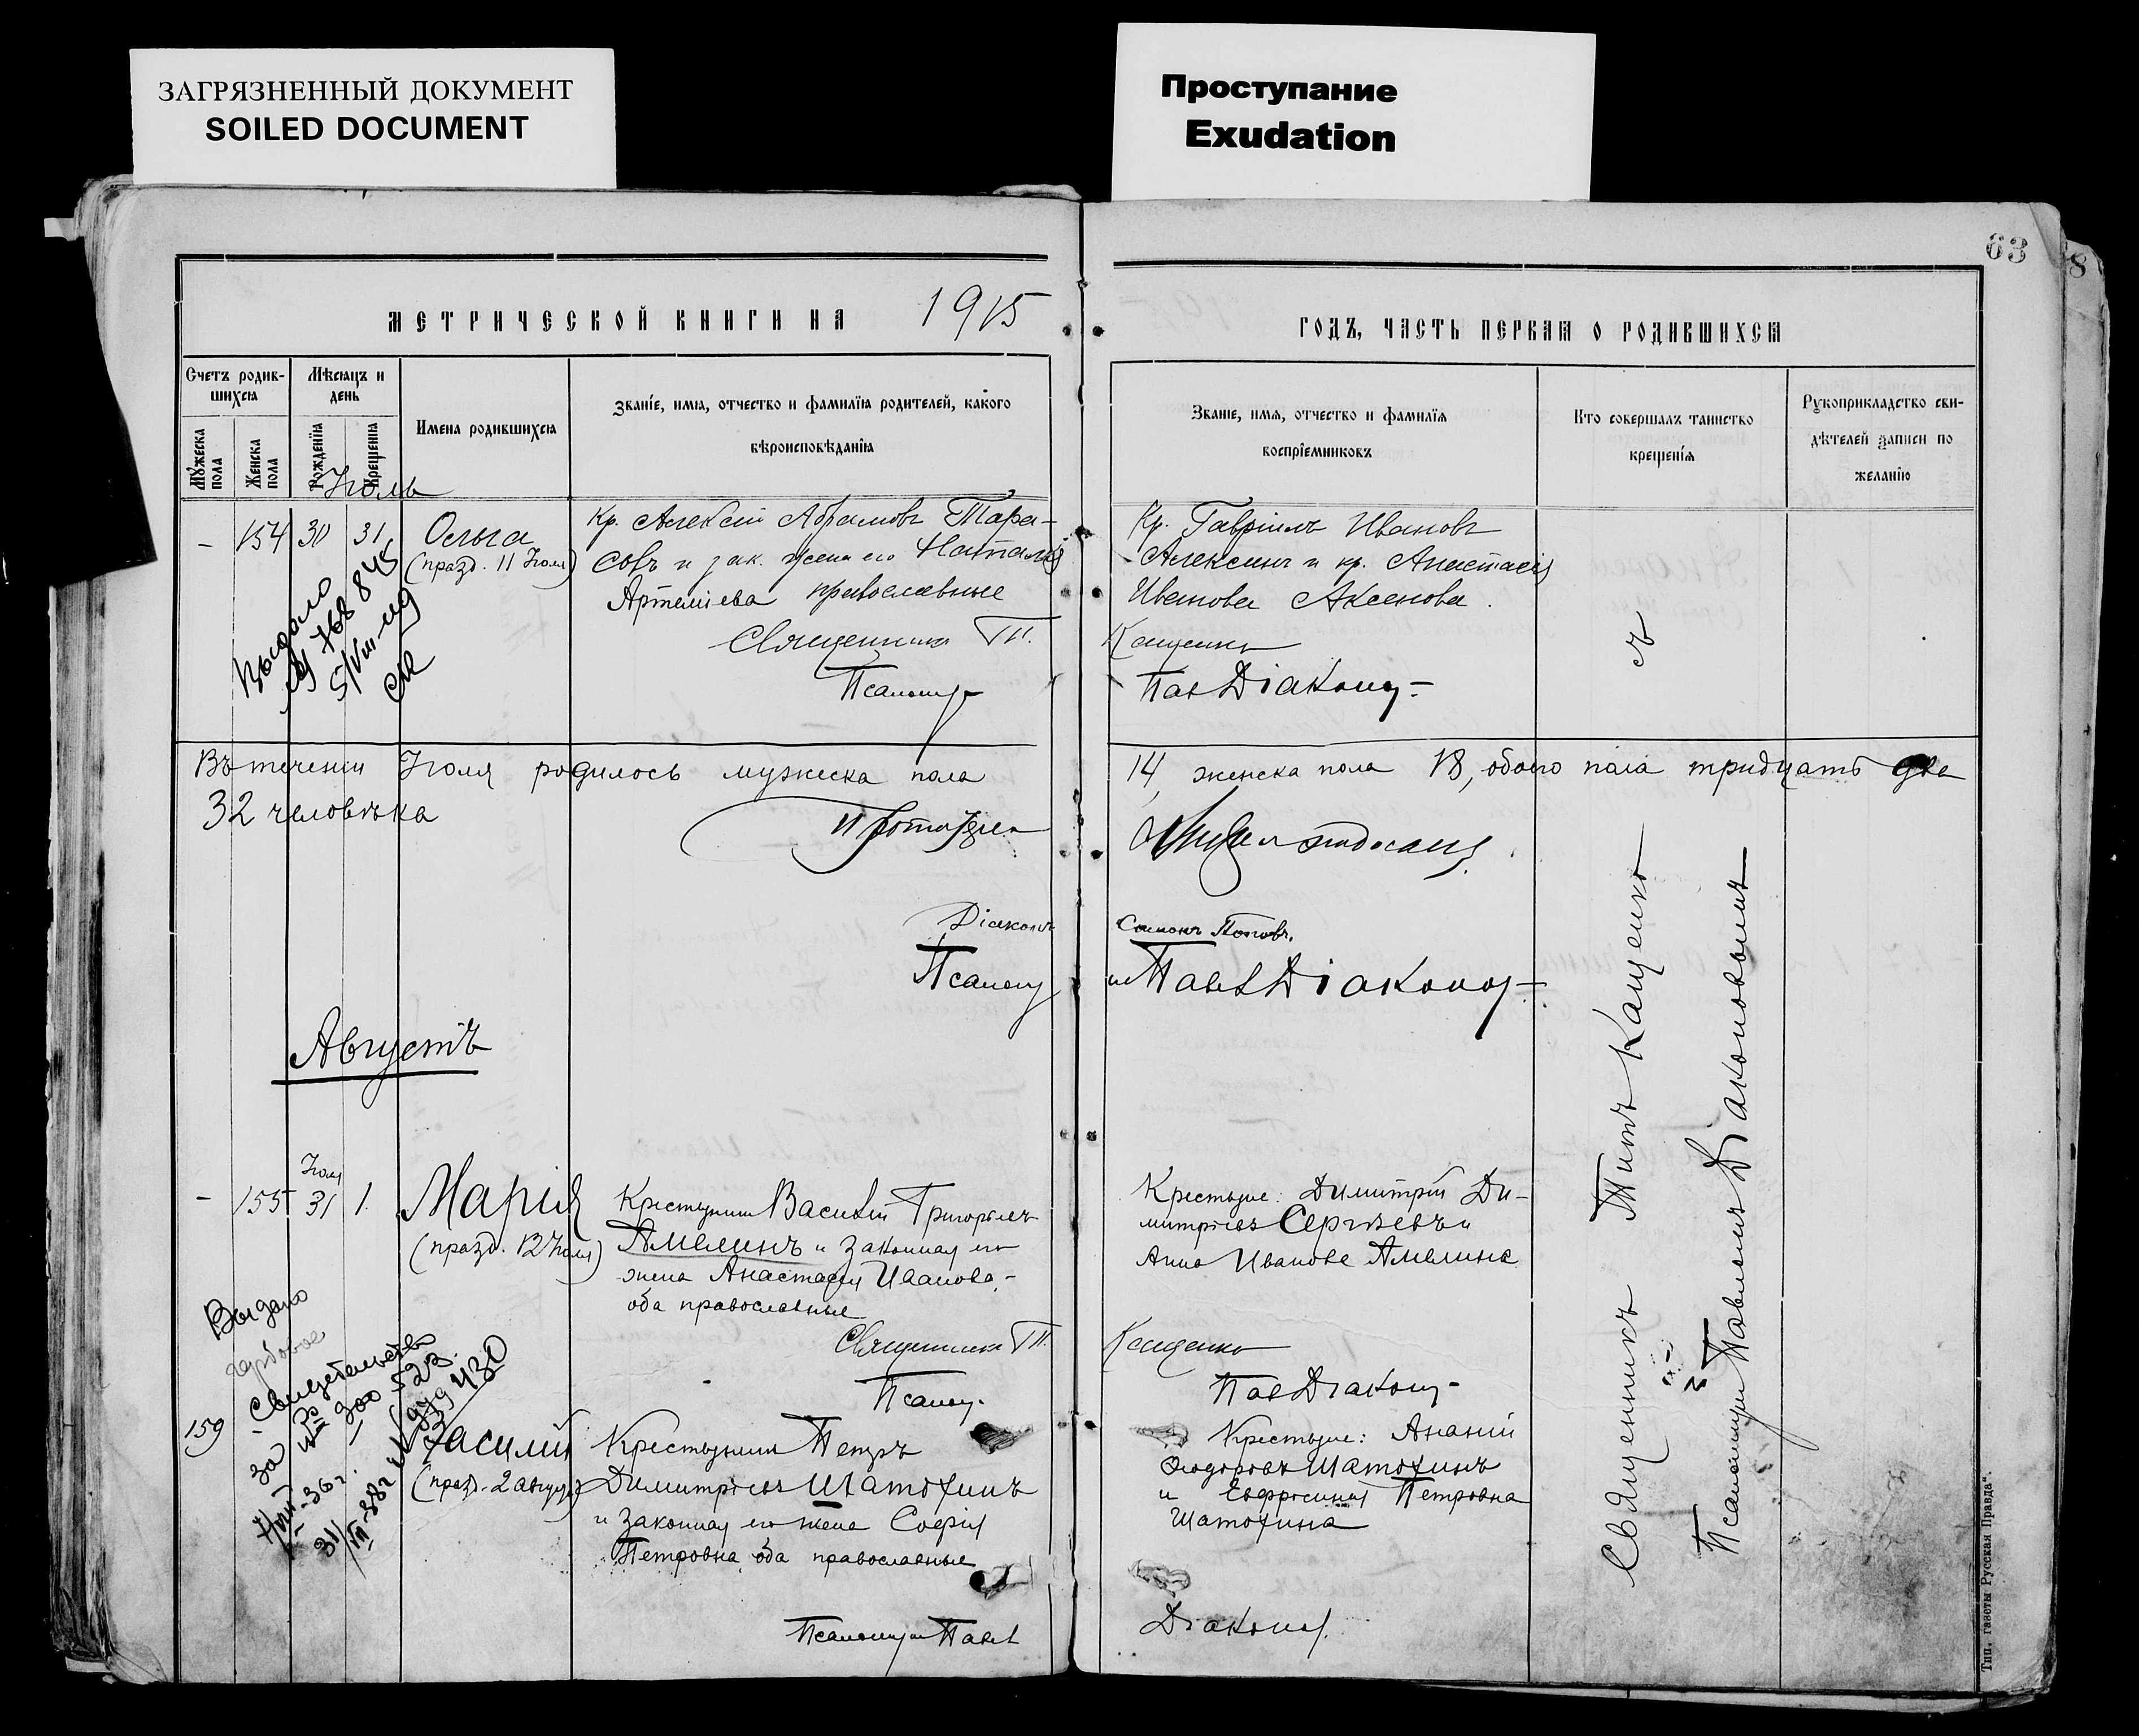 ЗАГРЯЗНЕННЫЙ ДОКУМЕНТ
SOILED DOCUMENT
Проступание
Exudation
63
8
МЕТРИЧЕСКОЙ КНИГИ НА 1915
ГОДЪ, ЧАСТЬ ПЕРВАЯ О РОДИВШИХСЯ
Счетъ родив-
шихся
Мѣсяцъ и
день
Мужеска
пола
Женска
пола
Рожденія
Крещенія
Имена родившихся
Званіе, имя, отчество и фамилія родителей, какого
вѣроисповѣданія
Званіе, имя, отчество и фамилія
воспріемниковъ
Кто совершалъ таинство
крещенія
Рукоприкладство сви-
дѣтелей записи по
желанію
Іюль
- 154 30 31 Ольга
(празд. 11 Іюля)
Кр. Алексій Абрамовъ Тара-
совъ и зак. жена его Наталія
Артеміева православные
Священникъ Т.
Псаломщ
Кр. Гавріилъ Ивановъ
Алексинъ и кр. Анастасія
Иванова Аксенова.
Кащенко
Пав Діаконо
Выдано
768845
Въ теченіи Іюля родилось мужеска пола 14, женска пола 18, обоего пола тридцать два
32 человѣка
Діаконъ Симонъ Поповъ.
Псаломщ Пав Діаконо
Августъ
Іюля
- 155 31 1. Марія
(празд. 22 Іюля)
Крестьянинъ Василій Григорьевъ
Амелинъ и законная его
жена Анастасія Иванова,
оба православные
Священникъ Т.
Псалом.
Крестьяне: Димитрій Ди-
митріевъ Сергѣевъ и
Анна Иванова Амелина
Кащенко
Пав Діаконо
Выдано
свидетельство
за
300 523
36 г.
430
159 Василій
(празд. 2 августа)
Крестьянинъ Петръ
Димитріевъ Шатохинъ
и законная его жена Софія
Петровна оба православные
Псаломщ Павел
Крестьяне: Ананій
Ѳеодоровъ Шатохинъ
и Евфросинія Петровна
Шатохина
Діаконо
Священникъ Титъ Кащенко
съ
Псаломщ Павломъ Діаконовымъ
Тип. газеты Русская Правда".